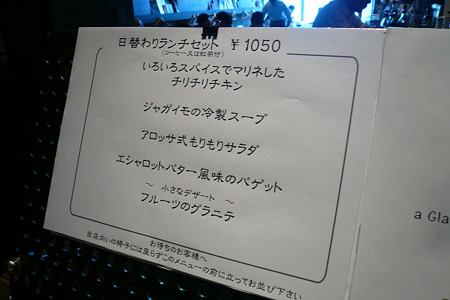 日替わりランチセット ￥1050
(コーヒー又は紅茶付)
いろいろスパイスでマリネした
チリチリチキン
ジャガイモの冷製スープ
アロッサ式もりもりサラダ
エシャロットバター風味のバゲット
～ 小さなデザート ～
フルーツのグラニテ
お待ちのお客様へ
当店向いの椅子には座らずこのメニューの前に立ってお並び下さい
a Gla